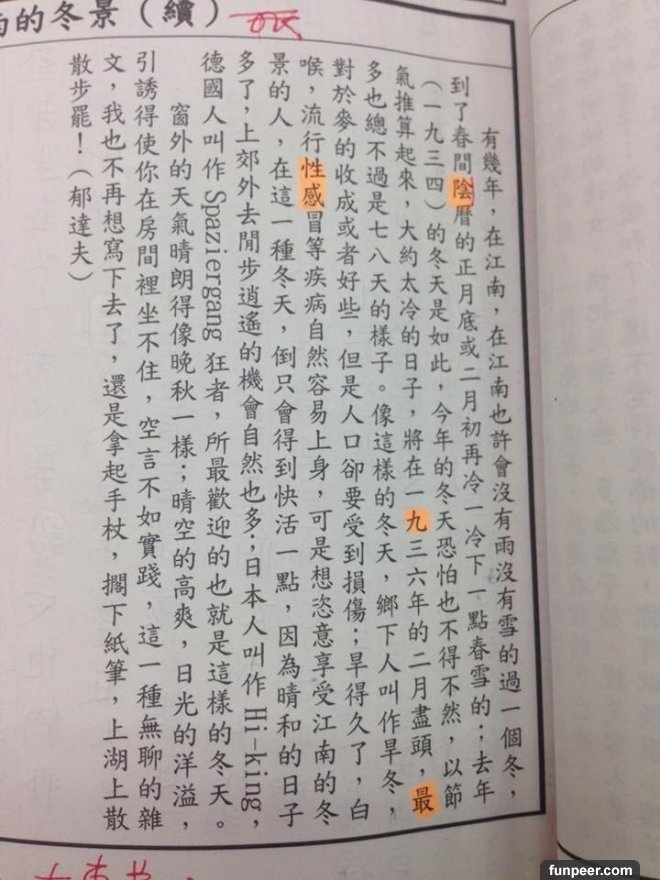 南的冬景（續）
有幾年，在江南，在江南也許會沒有雨沒有雪的過一個冬，
到了春間陰曆的正月底或二月初再冷一冷下一點春雪的；去年
（一九三四）的冬天是如此，今年的冬天恐怕也不得不然，以節
氣推算起來，大約太冷的日子，將在一九三六年的二月盡頭，最
多也總不過是七八天的樣子。像這樣的冬天，鄉下人叫作旱冬，
對於麥的收成或者好些，但是人口卻要受到損傷；旱得久了，白
喉，流行性感冒等疾病自然容易上身，可是想恣意享受江南的冬
景的人，在這一種冬天，倒只會得到快活一點，因為晴和的日子
多了，上郊外去閒步逍遙的機會自然也多；日本人叫作 Hi-king，
德國人叫作 Spaziergang 狂者，所最歡迎的也就是這樣的冬天。
窗外的天氣晴朗得像晚秋一樣；晴空的高爽，日光的洋溢，
引誘得使你在房間裡坐不住，空言不如實踐，這一種無聊的雜
文，我也不再想寫下去了，還是拿起手杖，擱下紙筆，上湖上散
散步罷！（郁達夫）
funpeer.com